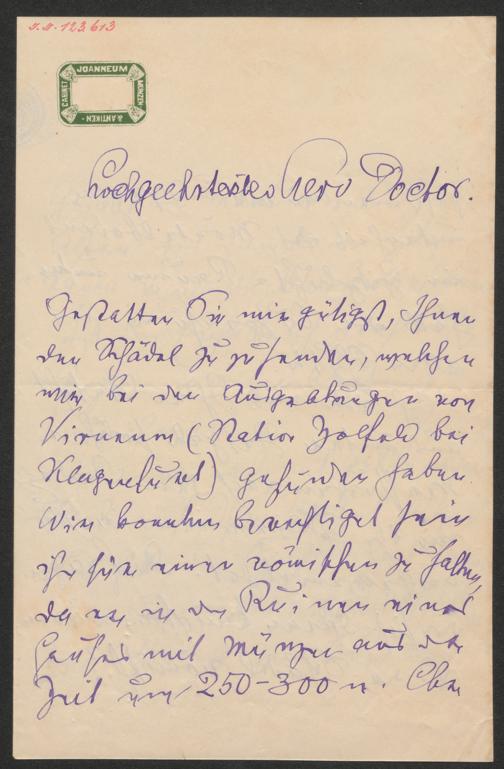 I.N. 123.613
JOANNEUM
MÜNZEN
& ANTIKEN-
CABINET
Hochgeehrtester Herr Doctor.
Gestatten Sie mir gütigst, Ihnen
den Schädel zu zu senden, welchen
wir bei den Ausgrabungen von
Virunum (Station Zollfeld bei
Klagenfurt) gefunden haben.
Wir konnten berechtigt sein
ihn für einen römischen zu halten,
da er in den Ruinen eines
Hauses mit Münzen aus der
Zeit um 250-300 n. Chr.